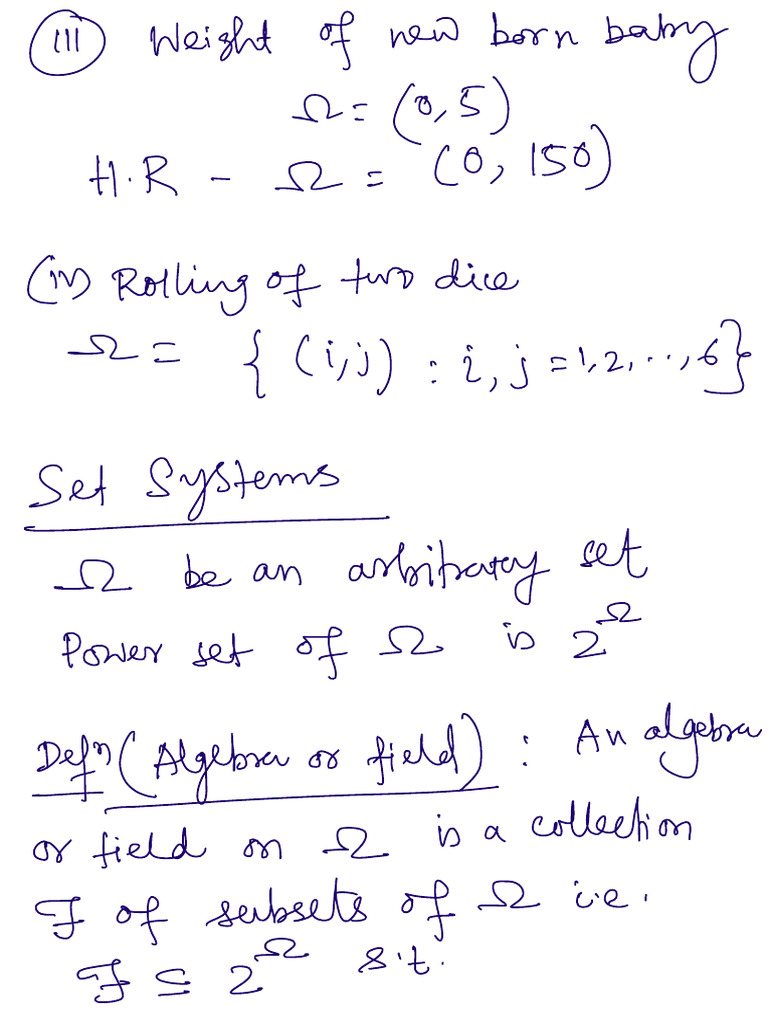 (iii) Weight of new born baby
Ω = (0, 5)
H.R - Ω = (0, 150)
(iv) Rolling of two dice
Ω = { (i,j) : i, j = 1, 2, .., 6}
Set Systems
Ω be an arbitrary set
Power set of Ω is 2^Ω
Defn (Algebra or field) : An algebra
or field on Ω is a collection
F of subsets of Ω i.e.
F ⊆ 2^Ω s.t.